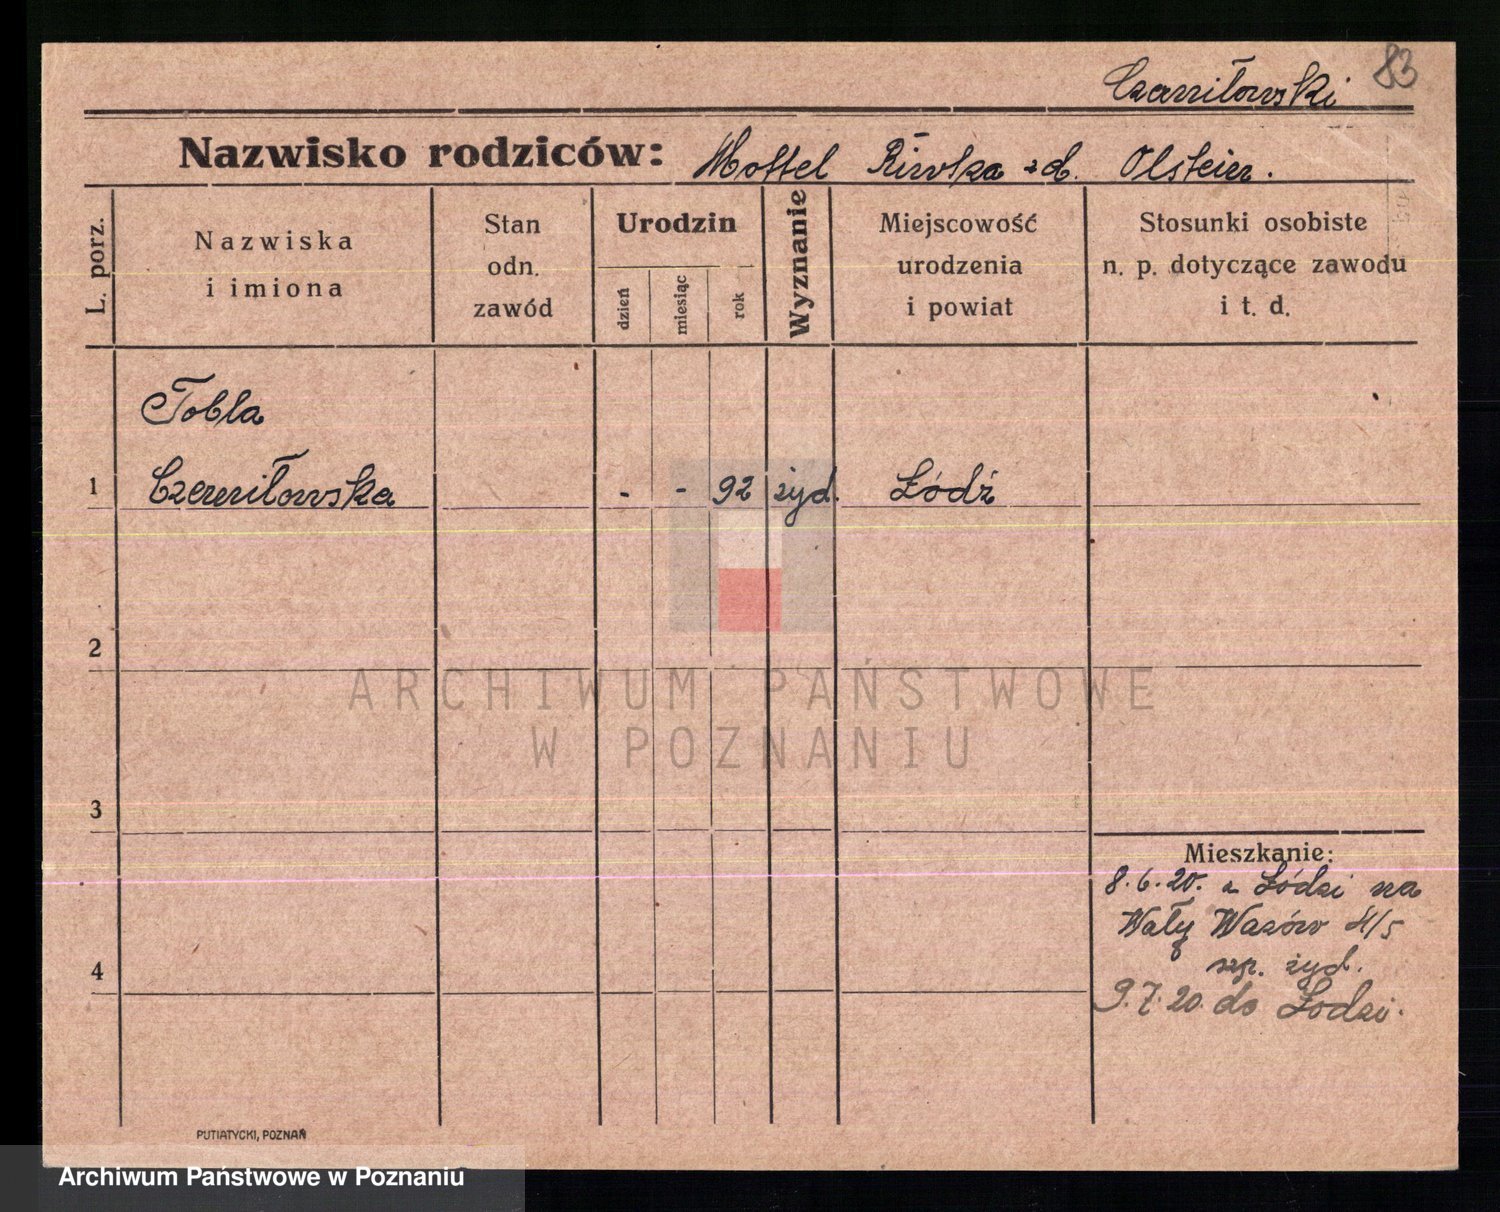 83
Czerniłowski
Nazwisko rodziców: Mottel Riwka zd. Olsteier.
L. porz.
Nazwiska
i imiona
Stan
odn.
zawód
Urodzin
dzień
miesiąc
rok
Wyznanie
Miejscowość
urodzenia
i powiat
Stosunki osobiste
n. p. dotyczące zawodu
i t. d.
Tobla
1 Czerniłowska - - 92 żyd. Łódź
2
ARCHIWUM PAŃSTWOWE
W POZNANIU
3
Mieszkanie:
8.6.20. z Łódzi na
Wały Wazów 4/5
szp. żyd.
4
9.7.20. do Łodzi.
PUTIATYCKI, POZNAŃ
Archiwum Państwowe w Poznaniu